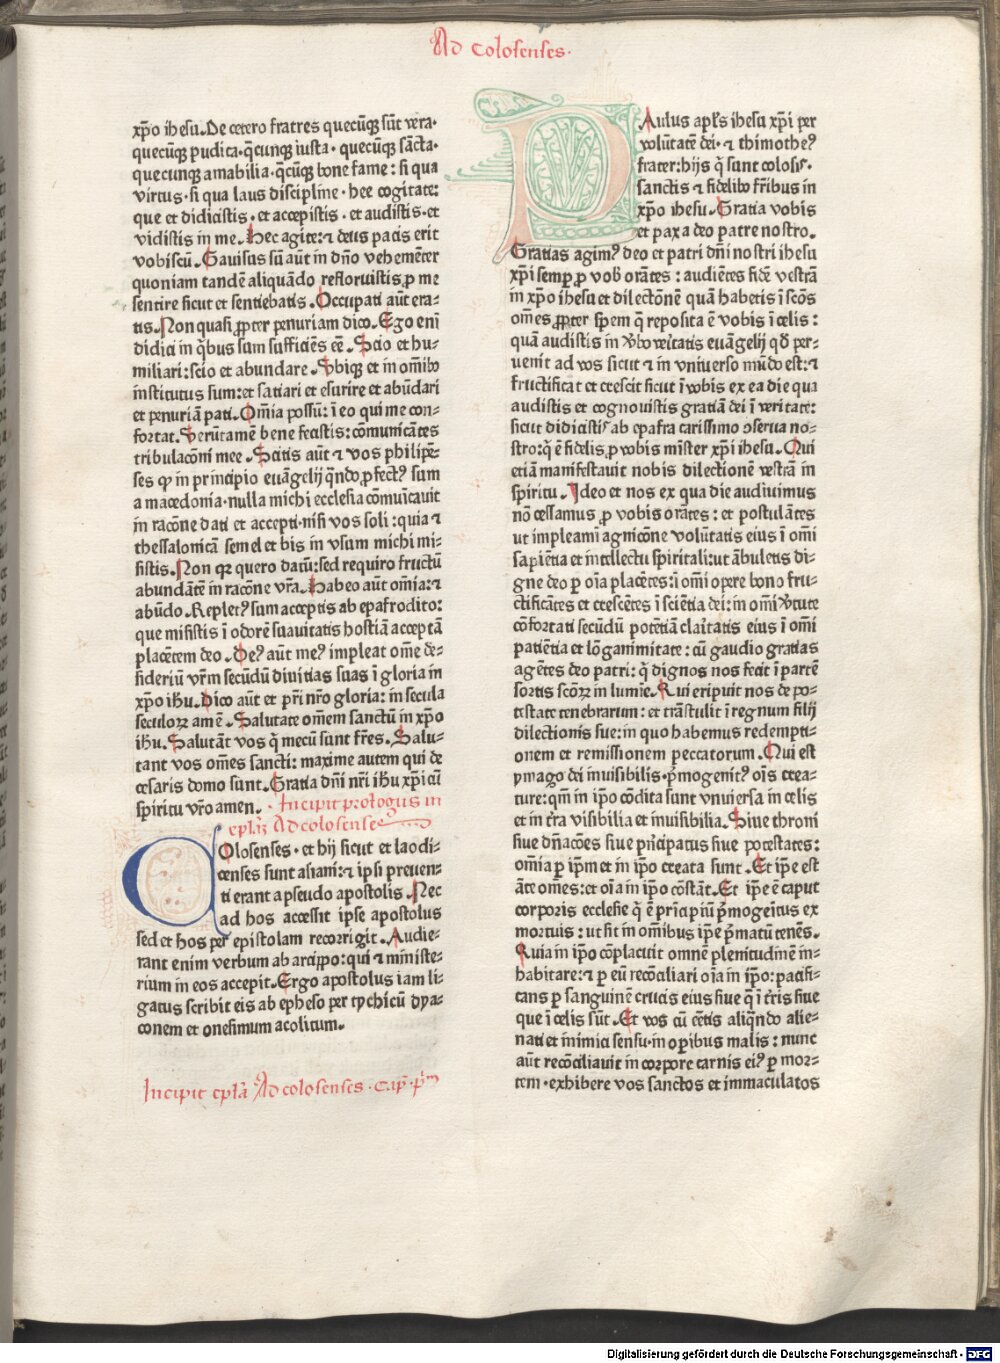 Ad Colosenses.
xp̄o ihesu. De cetero fratres quecūqꝫ sūt vera·
quecūqꝫ pudica· q̄cunqꝫ iusta· quecūqꝫ sācta·
quecunqꝫ amabilia· q̄cūqꝫ bone fame: si qua
virtus· si qua laus discipline· hec cogitate:
que et didicistis· et accepistis· et audistis· et
vidistis in me. Hec agite: ⁊ deus pacis erit
vobiscū. Gauisus sū aūt in dn̄o vehemēter
quoniam tandē aliquādo refloruistis ꝓ me
sentire sicut et sentiebatis. Occupati aūt era-
tis. Non quasi ꝓpter penuriam dico. Ego eni
didici in q̄bus sum sufficiēs eē. Scio et hu-
miliari: scio et abundare. Vbiqꝫ et in om̄ibꝰ
institutus sum: et satiari et esurire et abūdari
et penuriā pati. Om̄ia possū: ī eo qui me con-
fortat. Verūtamē bene fecistis: cōmunicātes
tribulacōni mee. Scitis aūt ⁊ vos philipē-
ses ꝙ in principio euāgelij qn̄do ꝓfectꝰ sum
a macedonia· nulla michi ecclesia cōmuīcauit
in racōne dati et accepti· nisi vos soli: quia ⁊
thessalonicā semel et bis in vsum michi mi-
sistis. Non qꝛ quero datū: sed requiro fructū
abundātē in racōne vr̄a. Habeo aūt om̄ia: ⁊
abūdo. Repletꝰ sum acceptis ab epafrodito:
que misistis ī odorē suauitatis hostiā acceptā
placētem deo. Deꝰ aūt meꝰ impleat om̄e de-
sideriū vr̄m secūdū diuitias suas ī gloria in
xp̄o ihū. Dico aūt et pr̄i nr̄o gloria: in secula
seculoꝝ amē. Salutate om̄em sanctū in xp̄o
ihū. Salutāt vos q̄ mecū sunt fr̄es. Salu-
tant vos om̄es sancti: maxime autem qui de
cesaris domo sunt. Gratia dn̄i nr̄i ihū xp̄i cū
spiritu vr̄o amen. Incipit prologus in
ep̄lā Ad colosenses
Colosenses· et hij sicut et laodi-
censes sunt asiani: ⁊ ipsi preuen-
ti erant a pseudo apostolis. Nec
ad hos accessit ipse apostolus
sed et hos per epistolam recorrigit. Audie-
rant enim verbum ab archippo: qui ⁊ ministe-
rium in eos accepit. Ergo apostolus iam li-
gatus scribit eis ab epheso per tychicū dya-
conem et onesimum acolitum.
Incipit ep̄lā Ad colosenses· Cap̄· p̄m
PAulus apl̄s ihesu xp̄i per
volūtatē dei· ⁊ thimotheꝰ
frater: hijs q̄ sunt colosis·
sanctis ⁊ fidelibꝰ fr̄ibus in
xp̄o ihesu. Gratia vobis
et pax a deo patre nostro.
Gratias agimꝰ deo et patri dn̄i nostri ihesu
xp̄i semꝑ ꝓ vob̄ orātes: audiētes fidē vestrā
in xp̄o ihesu et dilectōnē quā habetis ī scōs
om̄es ꝓpter spem q̄ reposita ē vobis ī celis:
quā audistis in v̄bo veritatis euāgelij qd̄ per-
uenit ad vos sicut ⁊ in vniuerso mūdo est: ⁊
fructificat et crescit sicut ī vobis ex ea die qua
audistis et cognouistis gratiā dei ī veritate:
sicut didicistis ab epafra carissimo ꝯseruo no-
stro: q̄ ē fidelis ꝓ vobis mīster xp̄i ihesu. Qui
etiā manifestauit nobis dilectionē vestrā in
spiritu. Ideo et nos ex qua die audiuimus
nō cessamus ꝓ vobis orātes: et postulātes
ut impleami agnicōne volūtatis eius ī om̄i
sapiētia et intellectu spiritali: ut ābuletis di-
gne deo ꝑ oīa placētes: ī om̄i opere bono fru-
ctificātes et crescētes ī sciētia dei: in om̄i v̄tute
cōfortati secūdū potētiā clarītatis eius ī om̄i
patiētia et lōganimitate: cū gaudio gratias
agētes deo patri: q̄ dignos nos fecit ī partē
sortis scōꝝ in lumīe. Qui eripuit nos de po-
testate tenebrarum: et trāstulit ī regnum filij
dilectionis sue: in quo habemus redempti-
onem et remissionem peccatorum. Qui est
ymago dei inuisibilis· p̄mogenitꝰ oīs crea-
ture: qm̄ in ip̄o cōdita sunt vniuersa in celis
et in tr̄a visibilia et inuisibilia. Siue throni
siue dn̄acōes siue pn̄cipatus siue potestates:
om̄ia ꝑ ip̄m et in ip̄o creata sunt. Et ip̄e est
āte om̄es: et oīa in ip̄o cōstāt. Et ip̄e ē caput
corporis ecclesie q̄ ē prīcipiū p̄mogeītus ex
mortuis: ut sit in om̄ibus ip̄e p̄matū tenēs.
Quia in ip̄o cōplacuit omnē plenitudinē in-
habitare: ⁊ ꝑ eū recōciliari oīa in ip̄o: pacifi-
cans ꝑ sanguinē crucis eius siue q̄ ī tr̄is siue
que ī celis sūt. Et vos cū eētis aliqn̄do alie-
nati et inimici sensu· in oꝑibus malis: nunc
aūt recōciliauit in corpore carnis eiꝰ ꝑ mor-
tem· exhibere vos sanctos et immaculatos
Digitalisierung gefördert durch die Deutsche Forschungsgemeinschaft - DFG